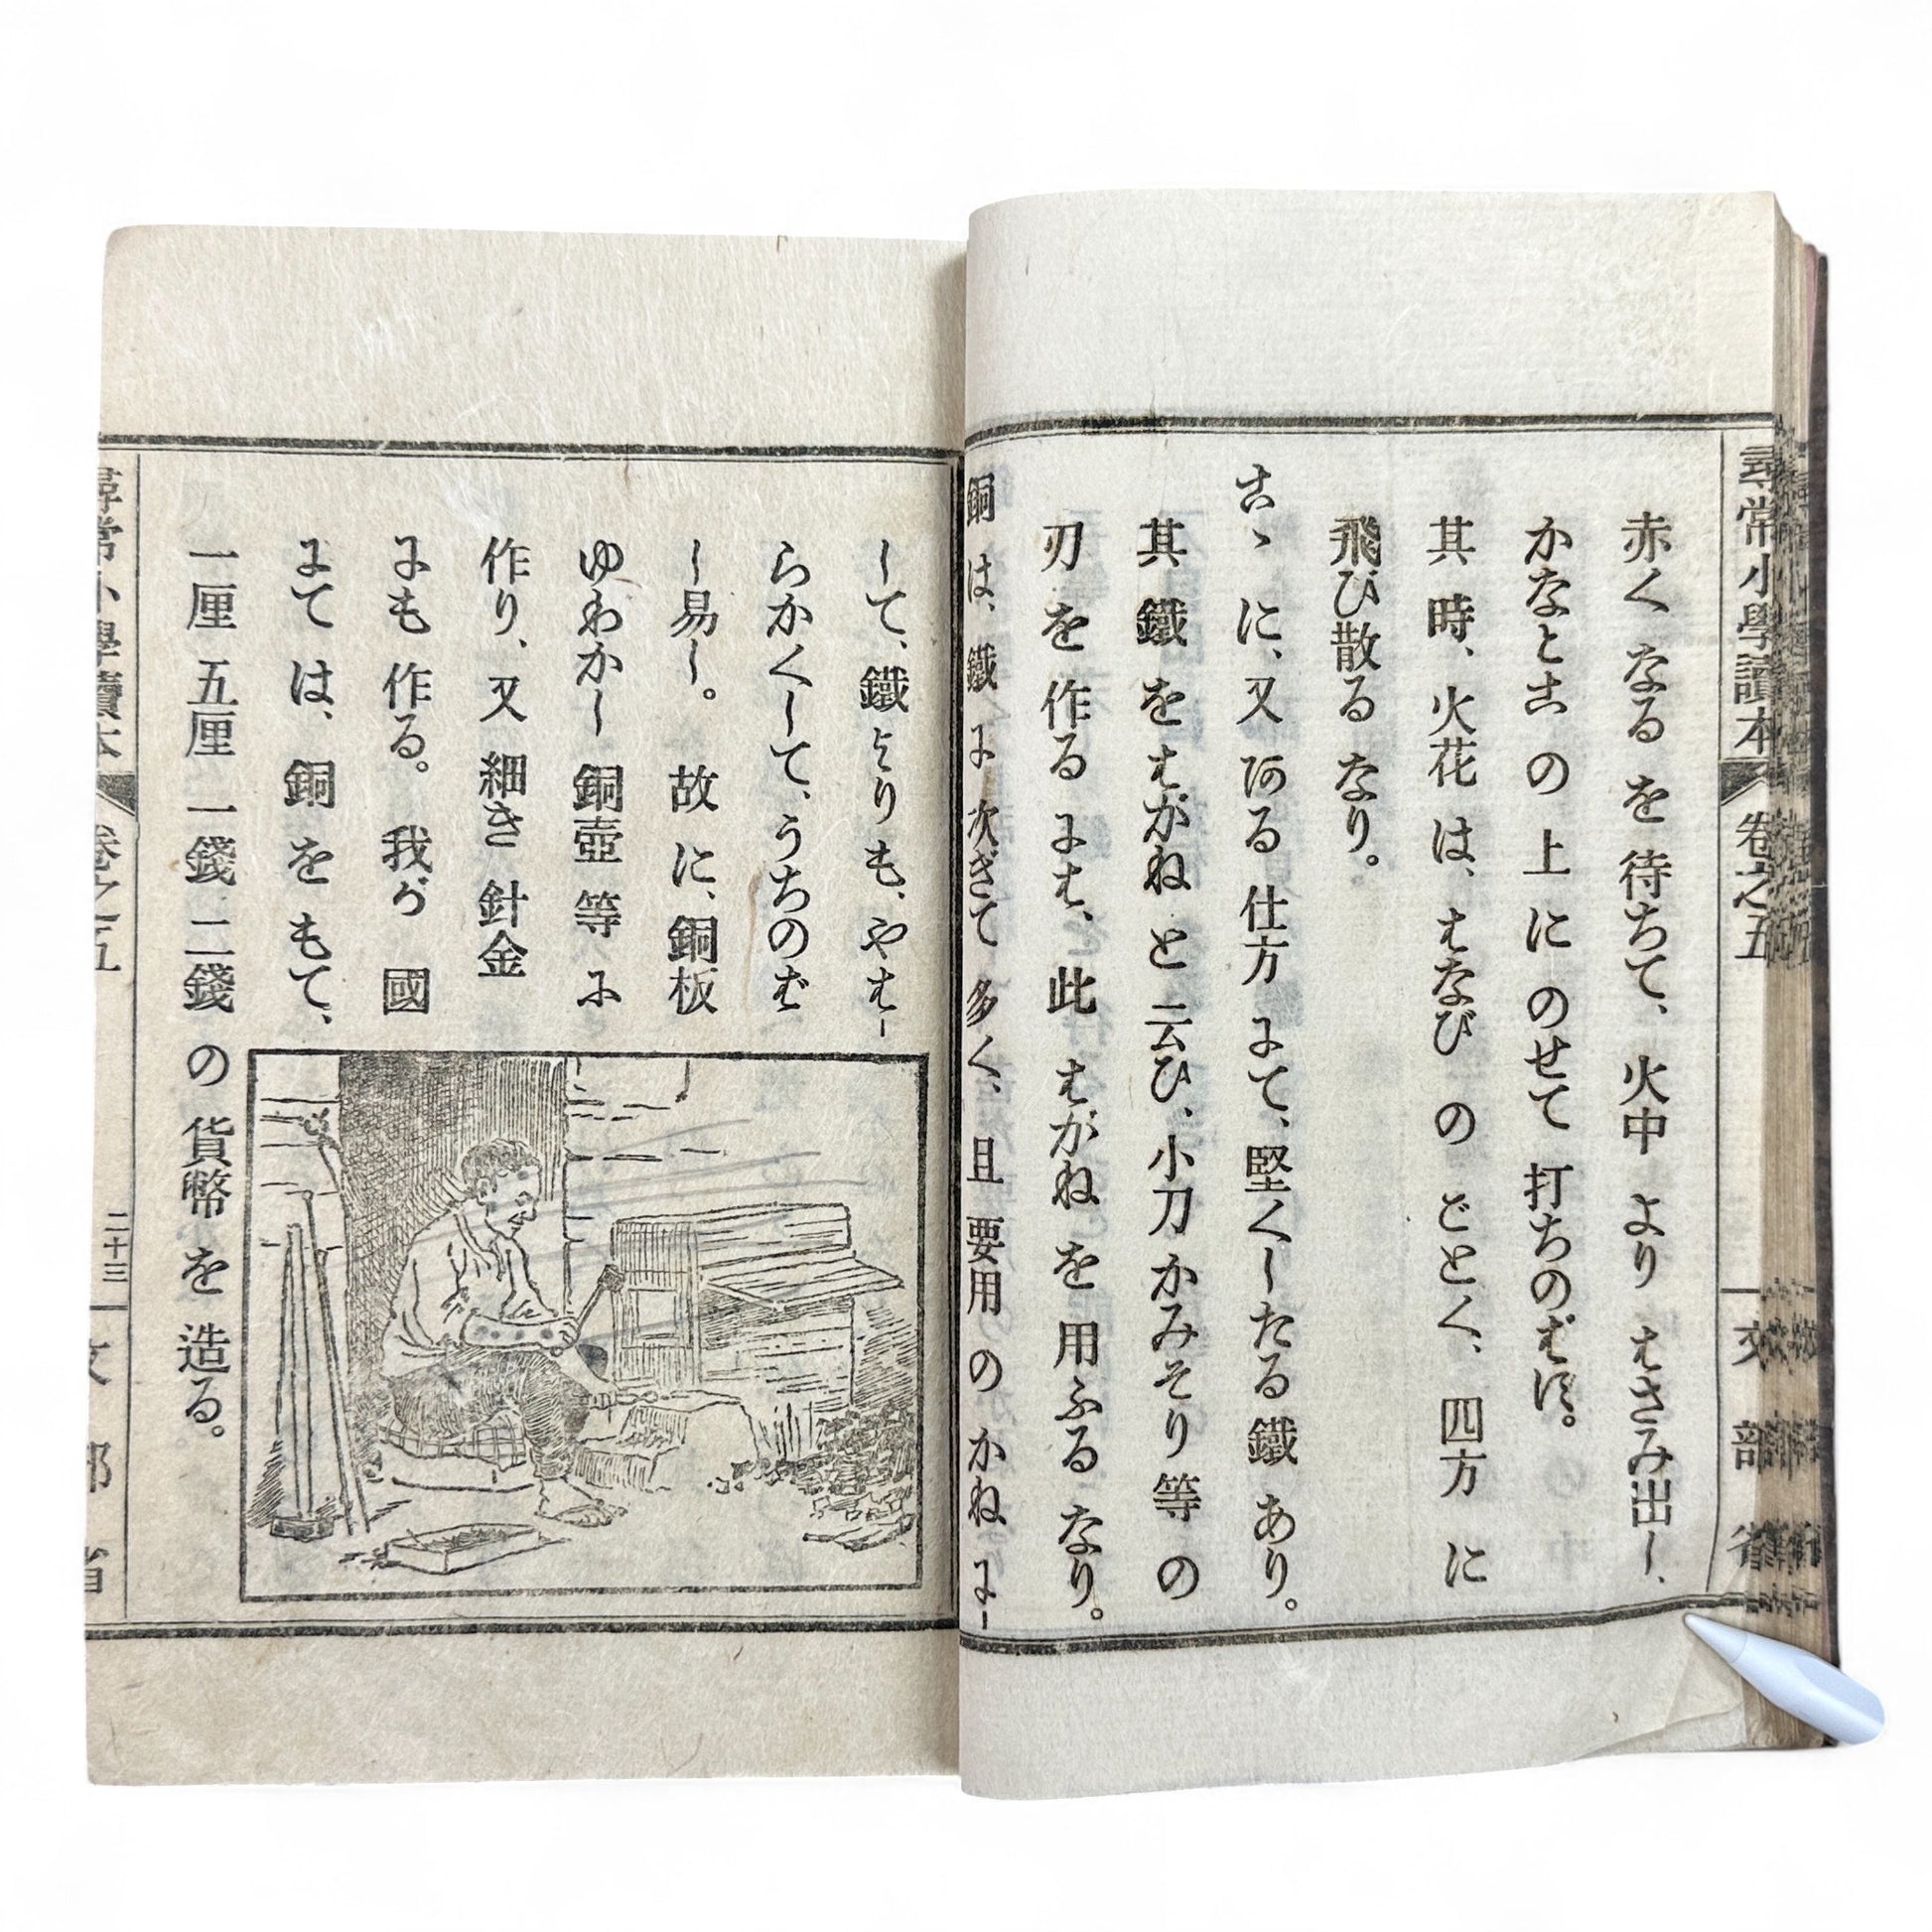 尋常小學讀本 卷之五 文部省
赤く なる を 待ちて、火中 より はさみ出し、
かなとこ の 上 に のせて 打ちのばす。
其 時、火花 は、はなび の ごとく、四方 に
飛び散る なり。
こゝ に、又 ある 仕方 にて、堅くしたる 鐵 あり。
其 鐵 を はがね と 云ひ、小刀 かみそり 等 の
刃 を 作る には、此 はがね を 用ふる なり。
銅 は、鐵 に 次ぎて 多く、且 要用 の かね に-
して、鐵よりも、やは-
らかくして、うちのば
し易し。故 に、銅板
ゆわかし 銅壺 等 に
作り、又 細き 針金
にも 作る。我が 國
にて は、銅 を もて、
一厘 五厘 一錢 二錢 の 貨幣 を 造る。
尋常小學讀本 卷之五 二十三 文部省